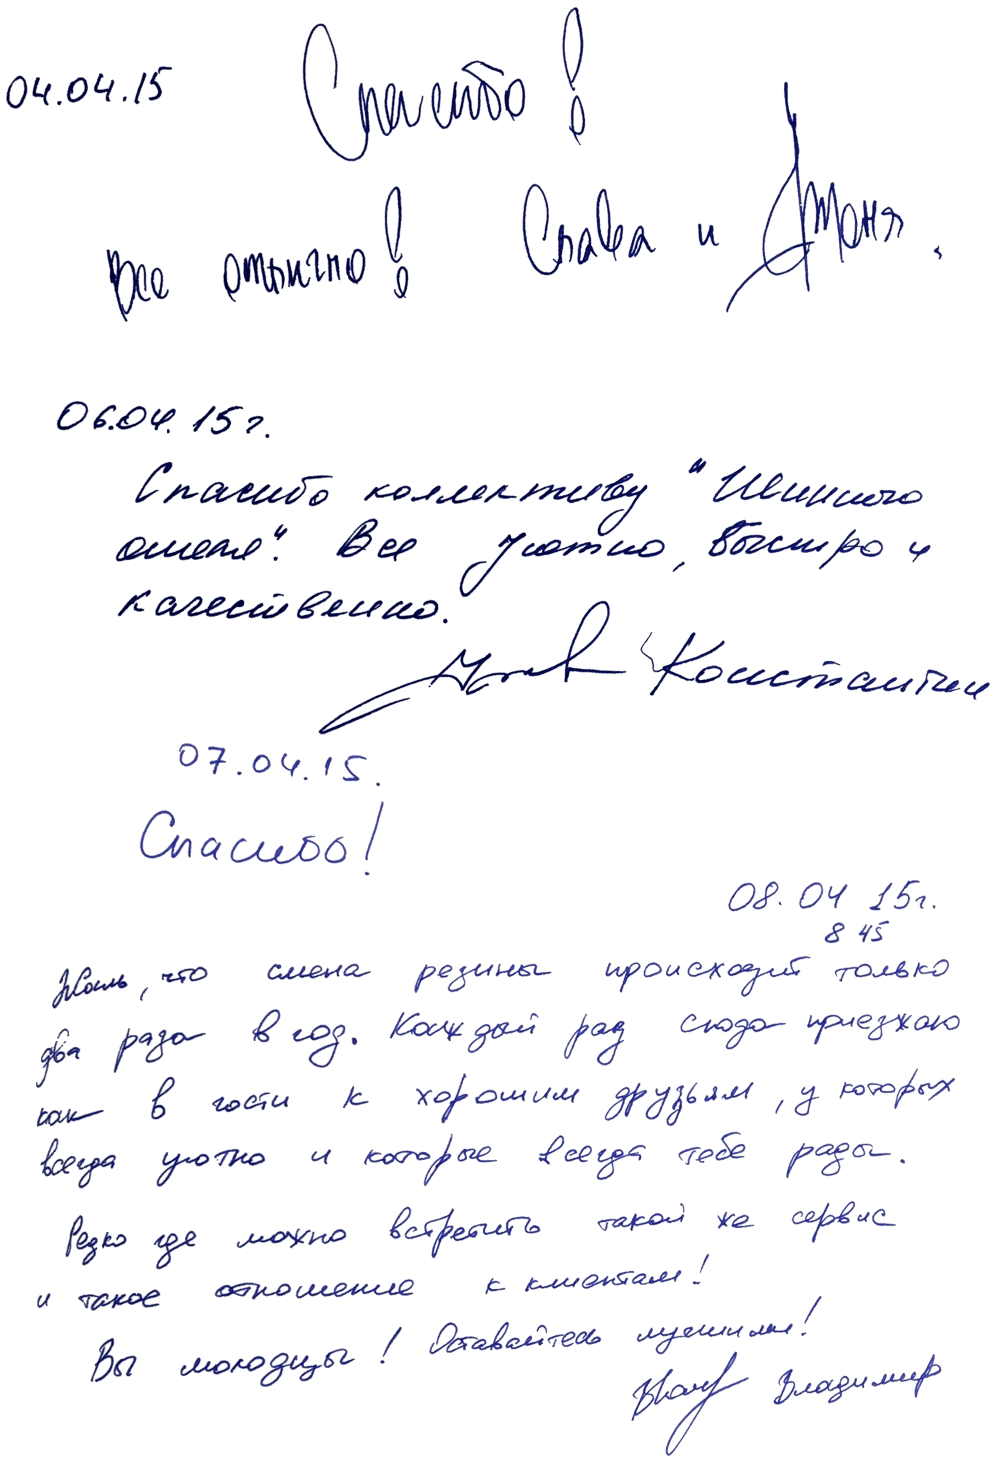 04.04.15
Спасибо!
Все отлично! Слава и Таня.
06.04.15г.
Спасибо коллективу "Шинного
отеля". Все уютно, быстро и
качественно.
Константин
07.04.15.
Спасибо!
08.04 15г.
8 45
Жаль, что смена резины происходит только
два раза в год. Каждый раз сюда приезжаю
как в гости к хорошим друзьям, у которых
всегда уютно и которые всегда тебе рады.
Редко где можно встретить такой же сервис
и такое отношение к клиентам!
Вы молодцы! Оставайтесь лучшими!
Владимир